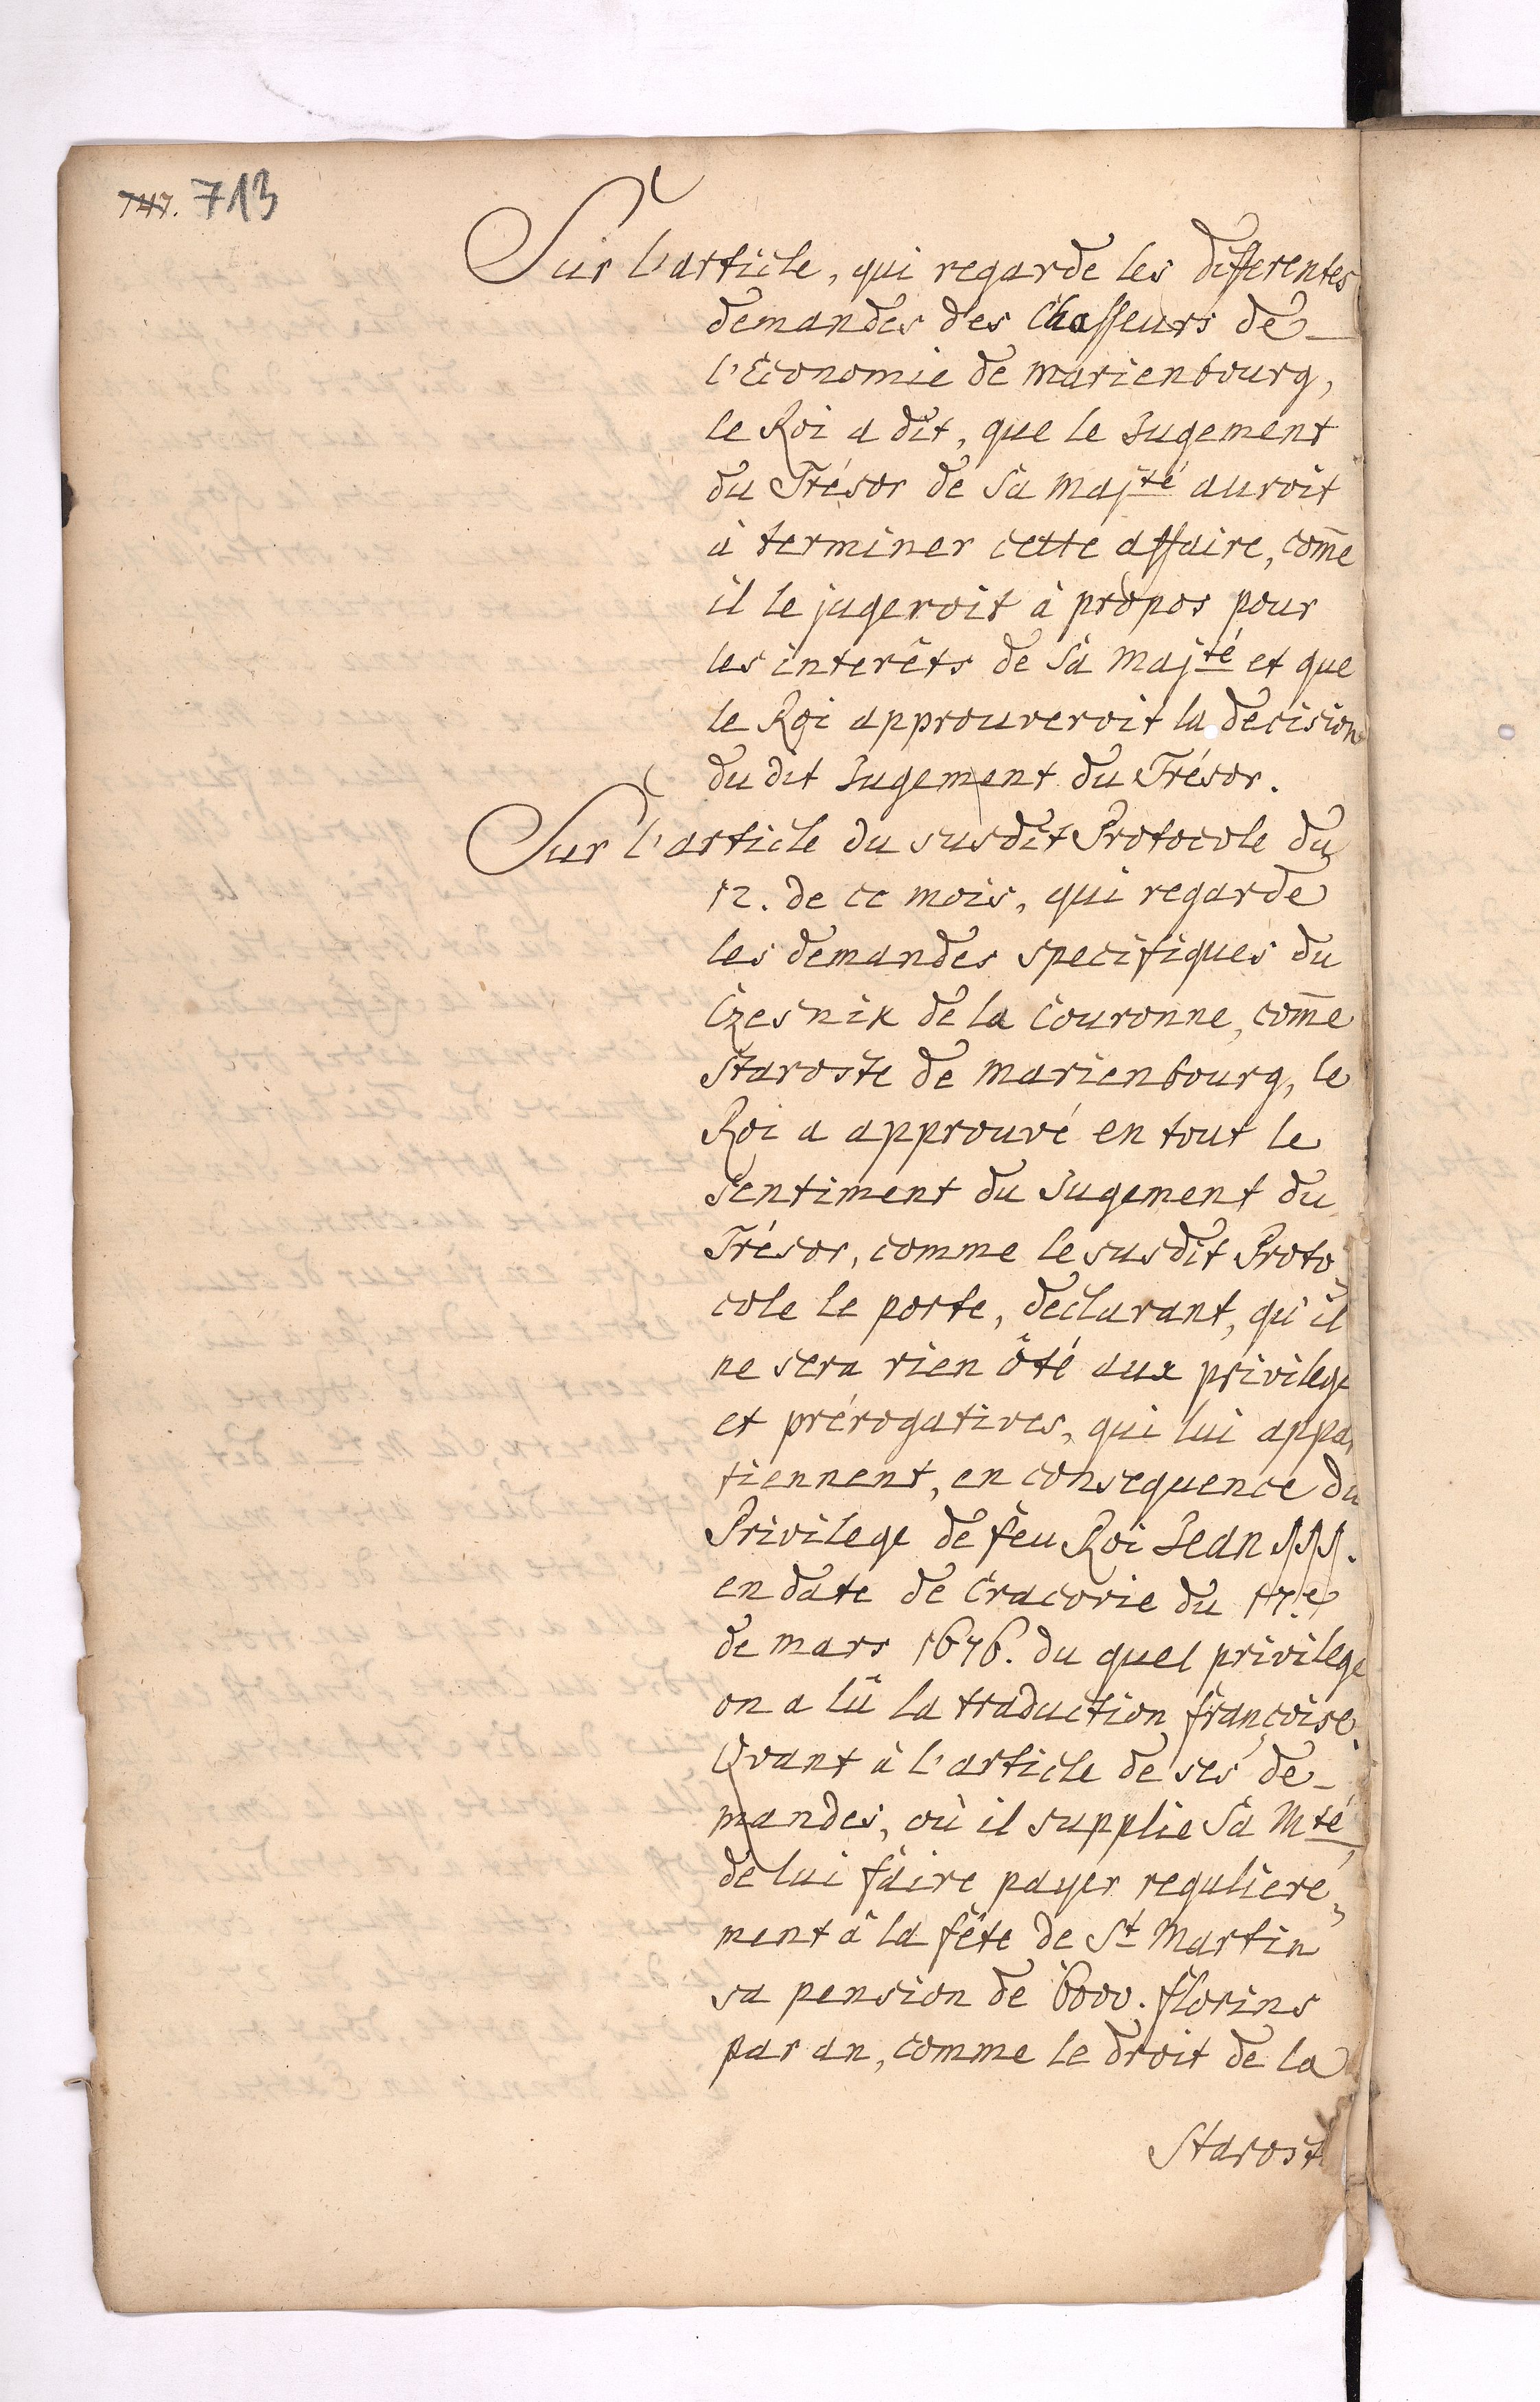 747. 713
Sur l'article, qui regarde les differentes
demandes des Chasseurs de
l'Economie de Marienbourg,
le Roi a dit, que le Jugement
du Trésor de Sa Majté auroit
à terminer cette affaire, com̄e
il le jugeroit à propos pour
les interêts de Sa Majté et que
le Roi approuveroit la decision
du dit Jugement du Trésor.
Sur l'article du susdit Protocole du
12. de ce mois, qui regarde
les demandes specifiques du
Czesnik de la Couronne, com̄e
Staroste de Marienbourg, le
Roi a approuvé en tout le
sentiment du Jugement du
Trésor, comme le susdit Proto
cole le porte, declarant, qu'il
ne sera rien ôté aux privilege
et prérogatives, qui lui appar
tiennent, en consequence du
Privilege de feu Roi Jean III.
en date de Cracovie du 17.e
de mars 1676. du quel privilege
on a lû la traduction françoise.
Quant à l'article de ses de-
mandes, où il supplie Sa Mté
de lui faire payer reguliere,
ment à la fête de St Martin
sa pension de 6000. florins
par an, comme le droit de la
Starost